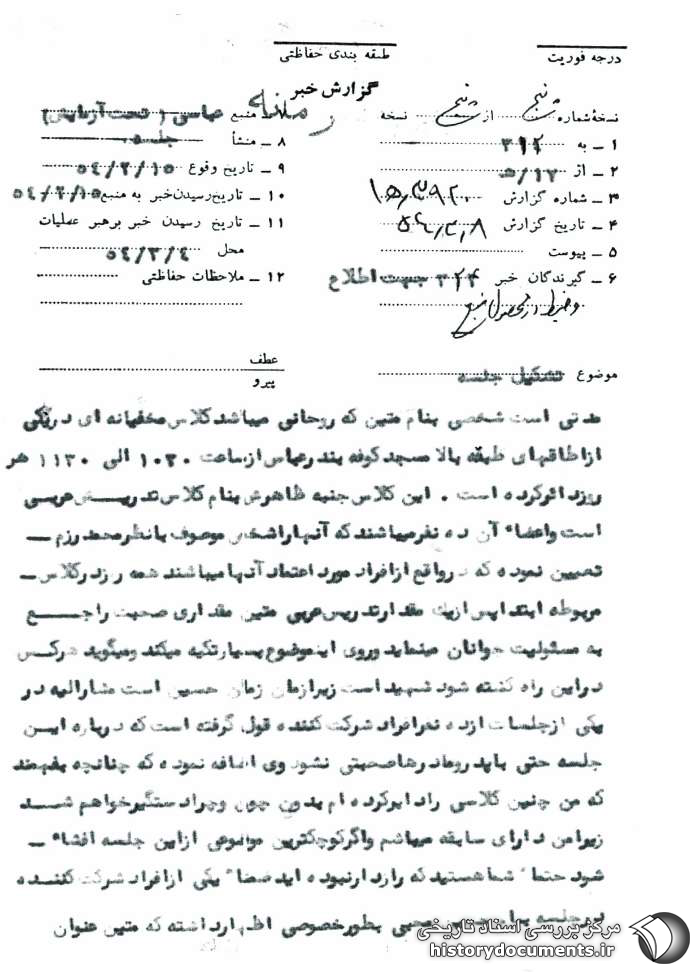 درجه فوریت
طبقه بندی حفاظتی
گزارش خبر
نسخهٔ شماره پنج از پنج نسخه
۱ ــ به ۳۱۲
۲ ــ از ۵/۱۲
۳ ــ شماره گزارش
۴ ــ تاریخ گزارش ۵۴٫۳٫۸
۵ ــ پیوست
۶ ــ گیرندگان خبر ۳۲۴ جهت اطلاع
۷ ــ منبع عباسی (تحت آزمایش)
۸ ــ منشأ جلسه
۹ ــ تاریخ وقوع ۵۴/۲/۱۵
۱۰ ــ تاریخ رسیدن خبر به منبع ۵۴/۲/۱۵
۱۱ ــ تاریخ رسیدن خبر برهبر عملیات
محل ۵۴/۳/۴
۱۲ ــ ملاحظات حفاظتی
عطف
پیرو
موضوع تشکیل جلسه
مدتی است شخصی بنام متین که روحانی میباشد کلاس مخفیانه ای در یکی
از اطاقهای طبقه بالا مسجد کوفه بندرعباس از ساعت ۱۰۳۰ الی ۱۱۳۰ هر
روز دائر کرده است . این کلاس جنبه ظاهرش بنام کلاس تدریس عربی
است واعضاء آن ده نفر میباشند که آنها را شخص موصوف با نظر محمد رزم ــ
تعیین نموده که در واقع از افراد مورد اعتماد آنها میباشند همه روز در کلاس ــ
مربوطه ابتدا پس از یک مقدار تدریس عربی متین مقداری صحبت راجع
به مسئولیت جوانان مینماید وروی اینموضوع بسیار تکیه میکند ومیگوید هرکس
در این راه کشته شود شهید است زیرا زمان زمان حسین است مشارالیه در
یکی از جلسات از ده نفر افراد شرکت کننده قول گرفته است که درباره این
جلسه حتی باید رومادرها صحبتی نشود وی اضافه نموده که چنانچه بفهمند
که من چنین کلاسی را دایر کرده ام بدون چون وچرا دستگیر خواهم شد
زیرا من دارای سابقه میباشم واگر کوچکترین موضوعی از این جلسه افشاء ــ
شود حتماً شما هستید که رازدار نبوده اید ضمناً یکی از افراد شرکت کننده
در جلسه محبی بطور خصوصی اظهار داشته که متین عنوان
مرکز بررسی اسناد تاریخی
historydocuments.ir